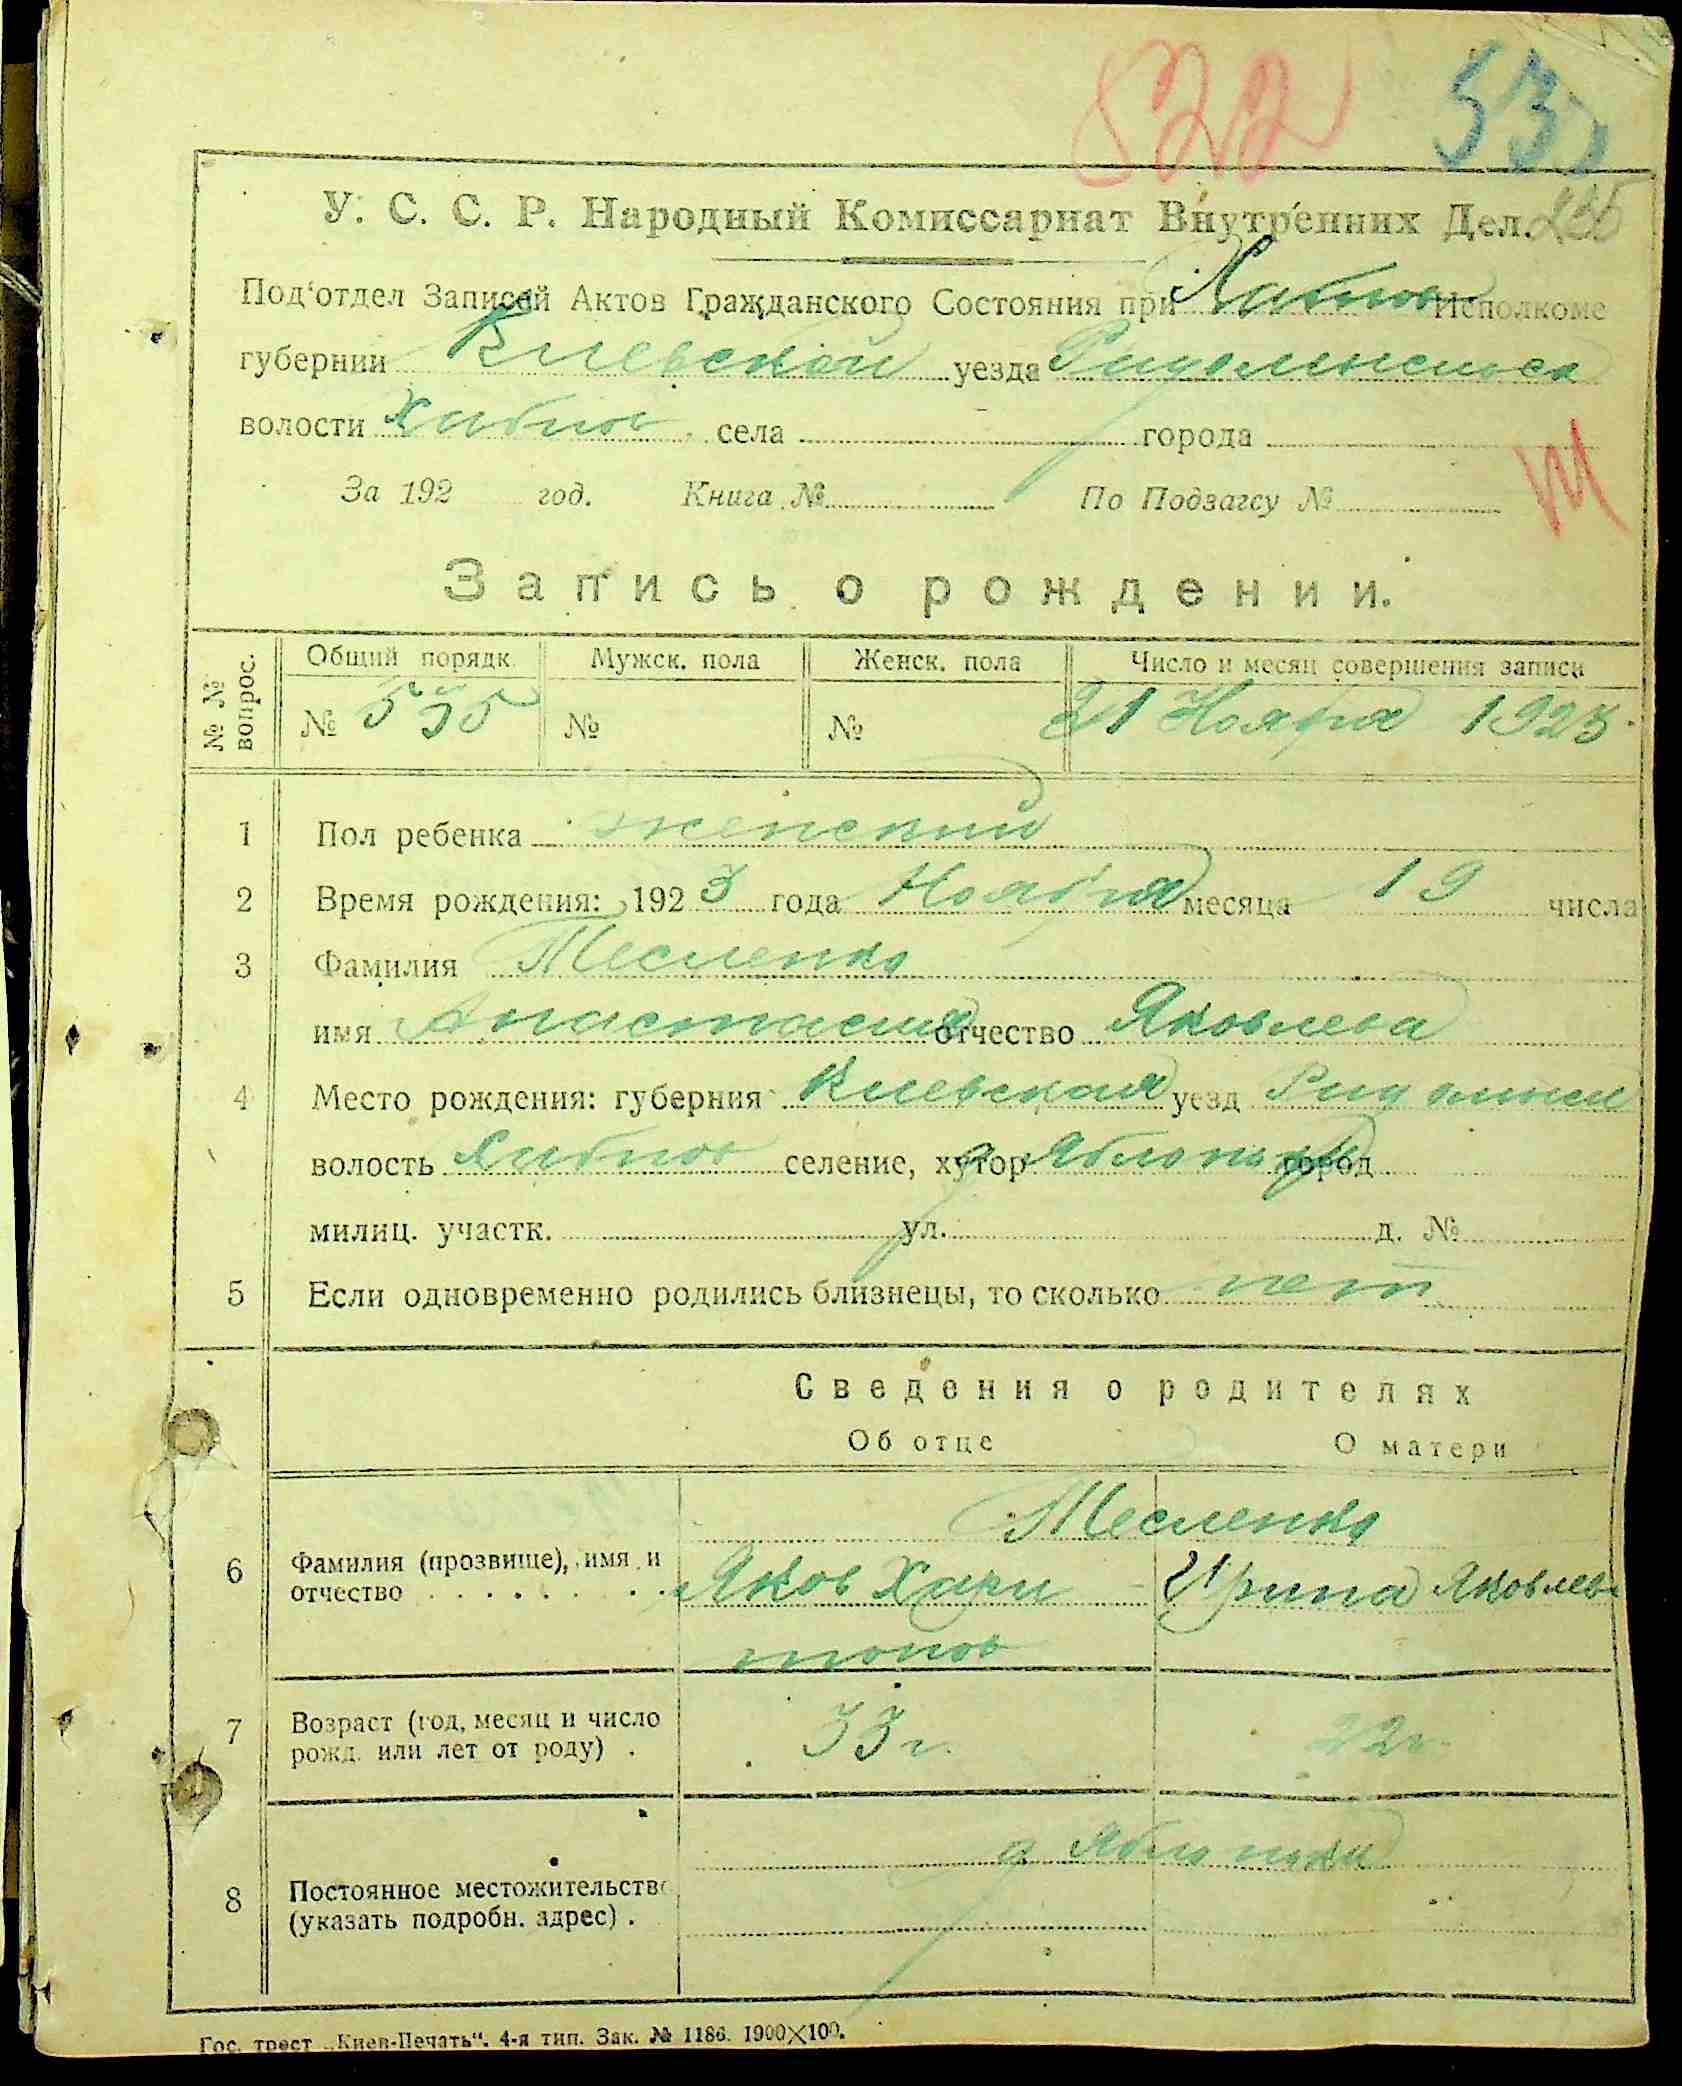 522 53
У. С. С. Р. Народный Комиссариат Внутренних Дел.
Под'отдел Записей Актов Гражданского Состояния при Хабнов Исполкоме
губернии Киевской уезда
волости Хабнов села города
За 192 год. Книга № По Подзагсу №
Запись о рождении.
№ № вопрос. Общий порядк. Мужск. пола Женск. пола Число и месяц совершения записи
№ 535 № № 21 Ноября 1923
1 Пол ребенка женский
2 Время рождения: 1923 года Ноября месяца 19 числа
3 Фамилия Тесленко
имя Анастасия отчество Яковлева
4 Место рождения: губерния Киевская уезд
волость Хабнов селение, хутор город
милиц. участк. ул. д. №
5 Если одновременно родились близнецы, то сколько нет
Сведения о родителях
Об отце О матери
Тесленко
6 Фамилия (прозвище), имя и
отчество Яков Хари Ирина Яковлев
тонов
7 Возраст (год, месяц и число
рожд. или лет от роду) . 33 г. 22 г.
8 Постоянное местожительство
(указать подробн. адрес) .
Гос. трест „Киев-Печать“. 4-я тип. Зак. № 1186. 1900×100.